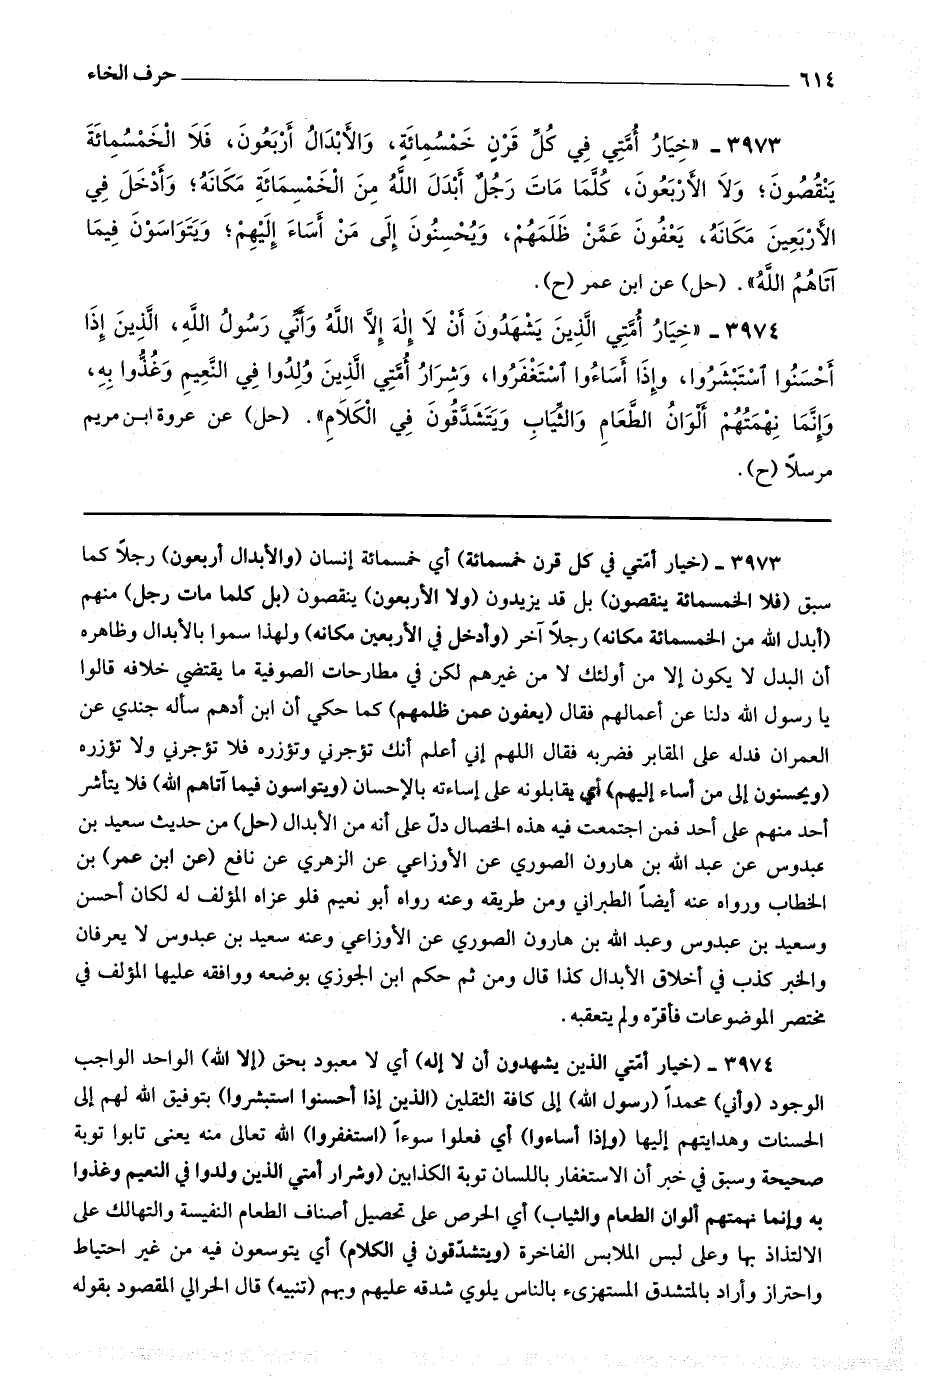 ٦١٤ حرف الخاء
٣٩٧٣ ـ «خِيَارُ أُمَّتِي فِي كُلِّ قَرْنٍ خَمْسُمِائَةٍ، وَالأَبْدَالُ أَرْبَعُونَ، فَلَا الْخَمْسُمِائَةَ
يَنْقُصُونَ؛ وَلَا الأَرْبَعُونَ، كُلَّمَا مَاتَ رَجُلٌ أَبْدَلَ اللَّهُ مِنَ الْخَمْسِمَائَةِ مَكَانَهُ؛ وَأَدْخَلَ فِي
الأَرْبَعِينَ مَكَانَهُ، يَعْفُونَ عَمَّنْ ظَلَمَهُمْ، وَيُحْسِنُونَ إِلَى مَنْ أَسَاءَ إِلَيْهِمْ؛ وَيَتَوَاسَوْنَ فِيمَا
آتَاهُمُ اللَّهُ». (حل) عن ابن عمر (ح).
٣٩٧٤ ـ «خِيَارُ أُمَّتِي الَّذِينَ يَشْهَدُونَ أَنْ لَا إِلٰهَ إِلَّا اللَّهُ وَأَنِّي رَسُولُ اللَّهِ، الَّذِينَ إِذَا
أَحْسَنُوا ٱسْتَبْشَرُوا، وإِذَا أَسَاءُوا ٱسْتَغْفَرُوا، وَشِرَارُ أُمَّتِي الَّذِينَ وُلِدُوا فِي النَّعِيمِ وَغُذُّوا بِهِ،
وَإِنَّمَا نِهْمَتُهُمْ أَلْوَانُ الطَّعَامِ وَالثِّيَابِ وَيَتَشَدَّقُونَ فِي الْكَلَامِ». (حل) عن عروة ابـن مريم
مرسلاً (ح).
٣٩٧٣ ـ (خيار أمّتي في كل قرن خمسمائة) أي خمسمائة إنسان (والأبدال أربعون) رجلاً كما
سبق (فلا الخمسمائة ينقصون) بل قد يزيدون (ولا الأربعون) ينقصون (بل كلما مات رجل) منهم
(أبدل الله من الخمسمائة مكانه) رجلاً آخر (وأدخل في الأربعين مكانه) ولهذا سموا بالأبدال وظاهره
أن البدل لا يكون إلا من أولئك لا من غيرهم لكن في مطارحات الصوفية ما يقتضي خلافه قالوا
يا رسول الله دلنا عن أعمالهم فقال (يعفون عمن ظلمهم) كما حكي أن ابن أدهم سأله جندي عن
العمران فدله على المقابر فضربه فقال اللهم إني أعلم أنك تؤجرني وتؤزره فلا تؤجرني ولا تؤزره
(ويحسنون إلى من أساء إليهم) أي يقابلونه على إساءته بالإحسان (ويتواسون فيما آتاهم الله) فلا يتأشر
أحد منهم على أحد فمن اجتمعت فيه هذه الخصال دلّ على أنه من الأبدال (حل) من حديث سعيد بن
عبدوس عن عبد الله بن هارون الصوري عن الأوزاعي عن الزهري عن نافع (عن ابن عمر) بن
الخطاب ورواه عنه أيضاً الطبراني ومن طريقه وعنه رواه أبو نعيم فلو عزاه المؤلف له لكان أحسن
وسعيد بن عبدوس وعبد الله بن هارون الصوري عن الأوزاعي وعنه سعيد بن عبدوس لا يعرفان
والخبر كذب في أخلاق الأبدال كذا قال ومن ثم حكم ابن الجوزي بوضعه ووافقه عليها المؤلف في
مختصر الموضوعات فأقرّه ولم يتعقبه.
٣٩٧٤ ـ (خيار أمّتي الذين يشهدون أن لا إله) أي لا معبود بحق (إلا الله) الواحد الواجب
الوجود (وأني) محمداً (رسول الله) إلى كافة الثقلين (الذين إذا أحسنوا استبشروا) بتوفيق الله لهم إلى
الحسنات وهدايتهم إليها (وإذا أساءوا) أي فعلوا سوءاً (استغفروا) الله تعالى منه يعنى تابوا توبة
صحيحة وسبق في خبر أن الاستغفار باللسان توبة الكذابين (وشرار أمتي الذين ولدوا في النعيم وغذوا
به وإنما نهمتهم ألوان الطعام والثياب) أي الحرص على تحصيل أصناف الطعام النفيسة والتهالك على
الالتذاذ بها وعلى لبس الملابس الفاخرة (ويتشدّقون في الكلام) أي يتوسعون فيه من غير احتياط
واحتراز وأراد بالمتشدق المستهزىء بالناس يلوي شدقه عليهم وبهم (تنبيه) قال الحرالي المقصود بقوله